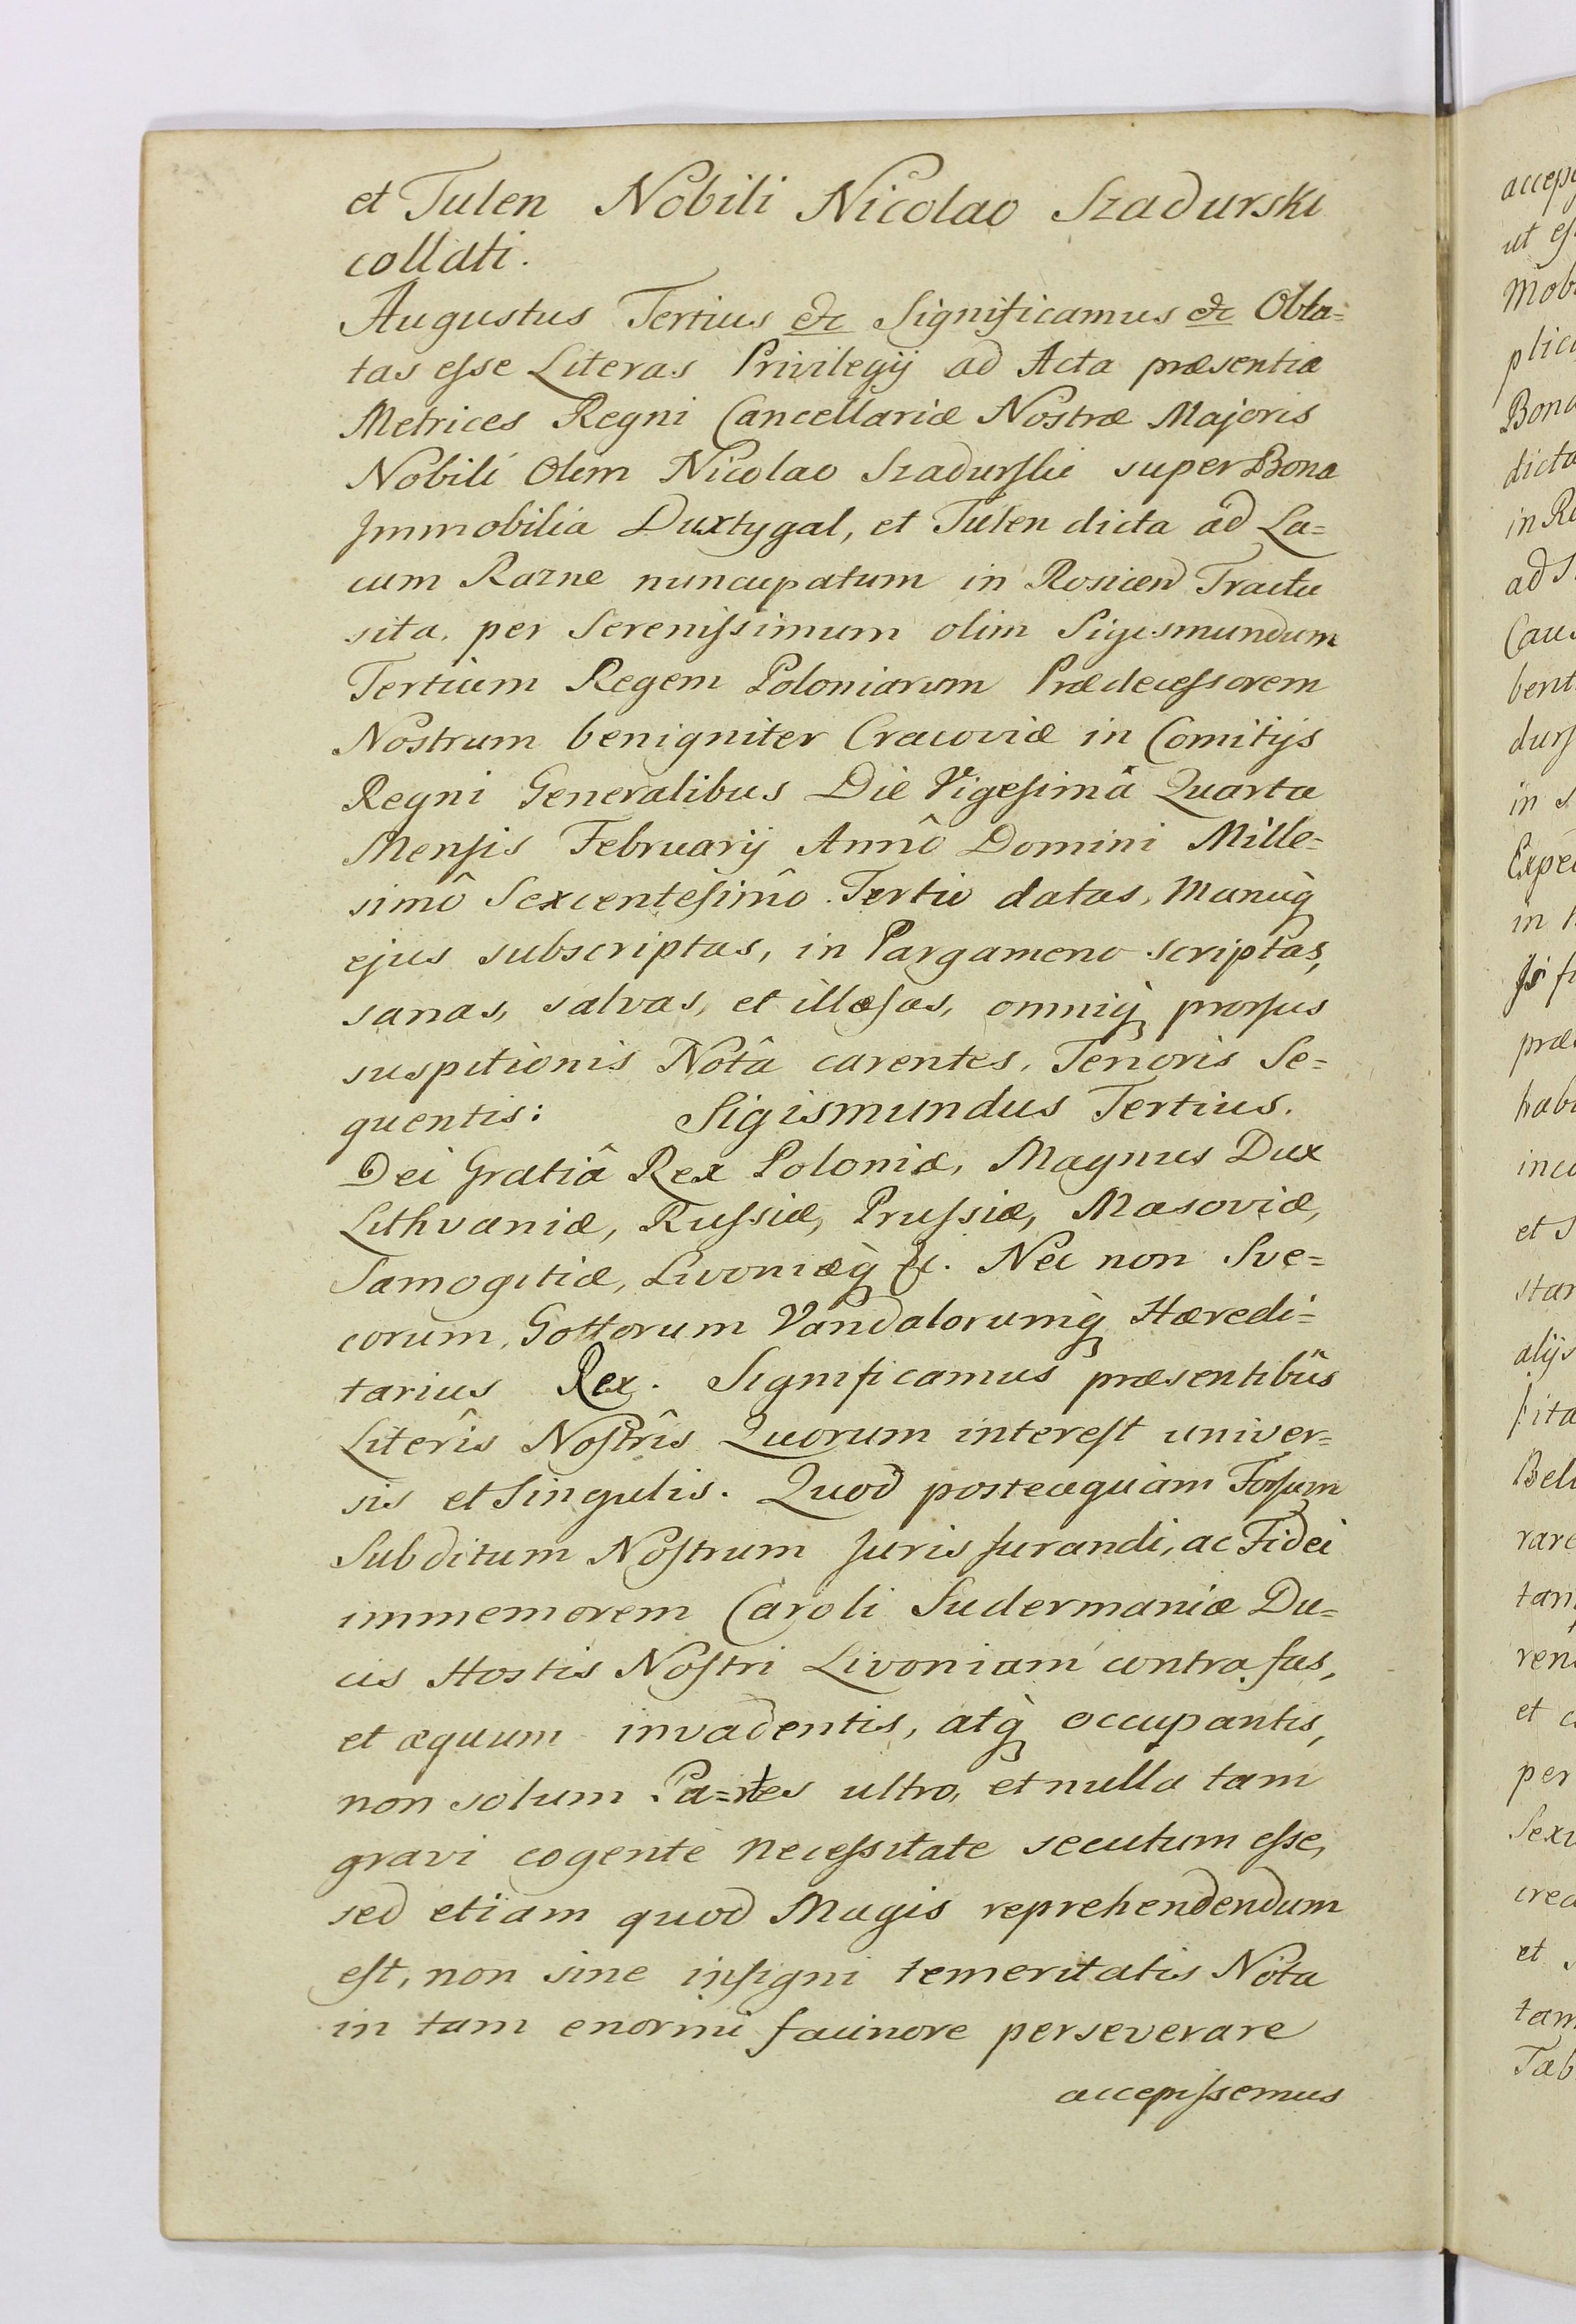 et Tulen Nobili Nicolao Szadurski
collati.
Augustus Tertius etc Significamus etc Obla=
tas eſse Literas Privilegij ad Acta præsentia
Metrices Regni Cancellariæ Nostræ Majoris
Nobili Olim Nicolao Szadurſki super Bona
Immobilia Duxtygal, et Tulen dicta ad La=
cum Razne nuncupatum in Rosicen Tractu
sita, per Sereniſsimum olim Sigismundum
Tertium Regem Poloniarum Prædeceſsorem
Nostrum benigniter Cracoviæ in Comitijs
Regni Generalibus Die Vigeſimâ Quarta
Menſis Februarij Annô Domini Mille=
simô Sexcenteſimô Tertio datas, Manuq̀
ejus subscriptas, in Pargameno scriptas,
sanas, salvas, et illæſas, omniq̀ prorſus
suspitionis Notâ carentes, Tenoris Se=
quentis: Sigismundus Tertius.
Dei Gratiâ Rex Poloniæ, Magnus Dux
Lithvaniæ, Ruſsiæ, Pruſsiæ, Masoviæ,
Samogitiæ, Livoniæq̀ &c. Nec non Sve=
corum, Gottorum Vandalorumq̀ Hæredi=
tarius Rex. Significamus præsentibus
Literîs Noſtrîs Quorum intereſt univer=
sis et Singulis. Quod posteaquàm Forſum
Subditum Noſtrum Juris Jurandi, ac Fidei
immemorem Caroli Sudermaniæ Du=
cis Hostis Noſtri Livoniam contra fas,
et æquum invadentis, atq̀ occupantis,
non solum Pa=rtes ultro, et nulla tam
gravi cogente neceſsitate secutum eſse,
sed etiam quod Magis reprehendendum
eſt, non sine inſigni temeritatis Nota
in tam enormi facinore perseverare
accepiſsemus
accep
ut eſ
Mobi
plica
Bona
dicta
in Ro
ad S
Caus
bent
durſ
in s
Exped
in
præ
habi
inco
et S
star
alijs
ſita
Bell
rare
tam
ren
et c
per
Sexc
crea
et s
tam
Tab